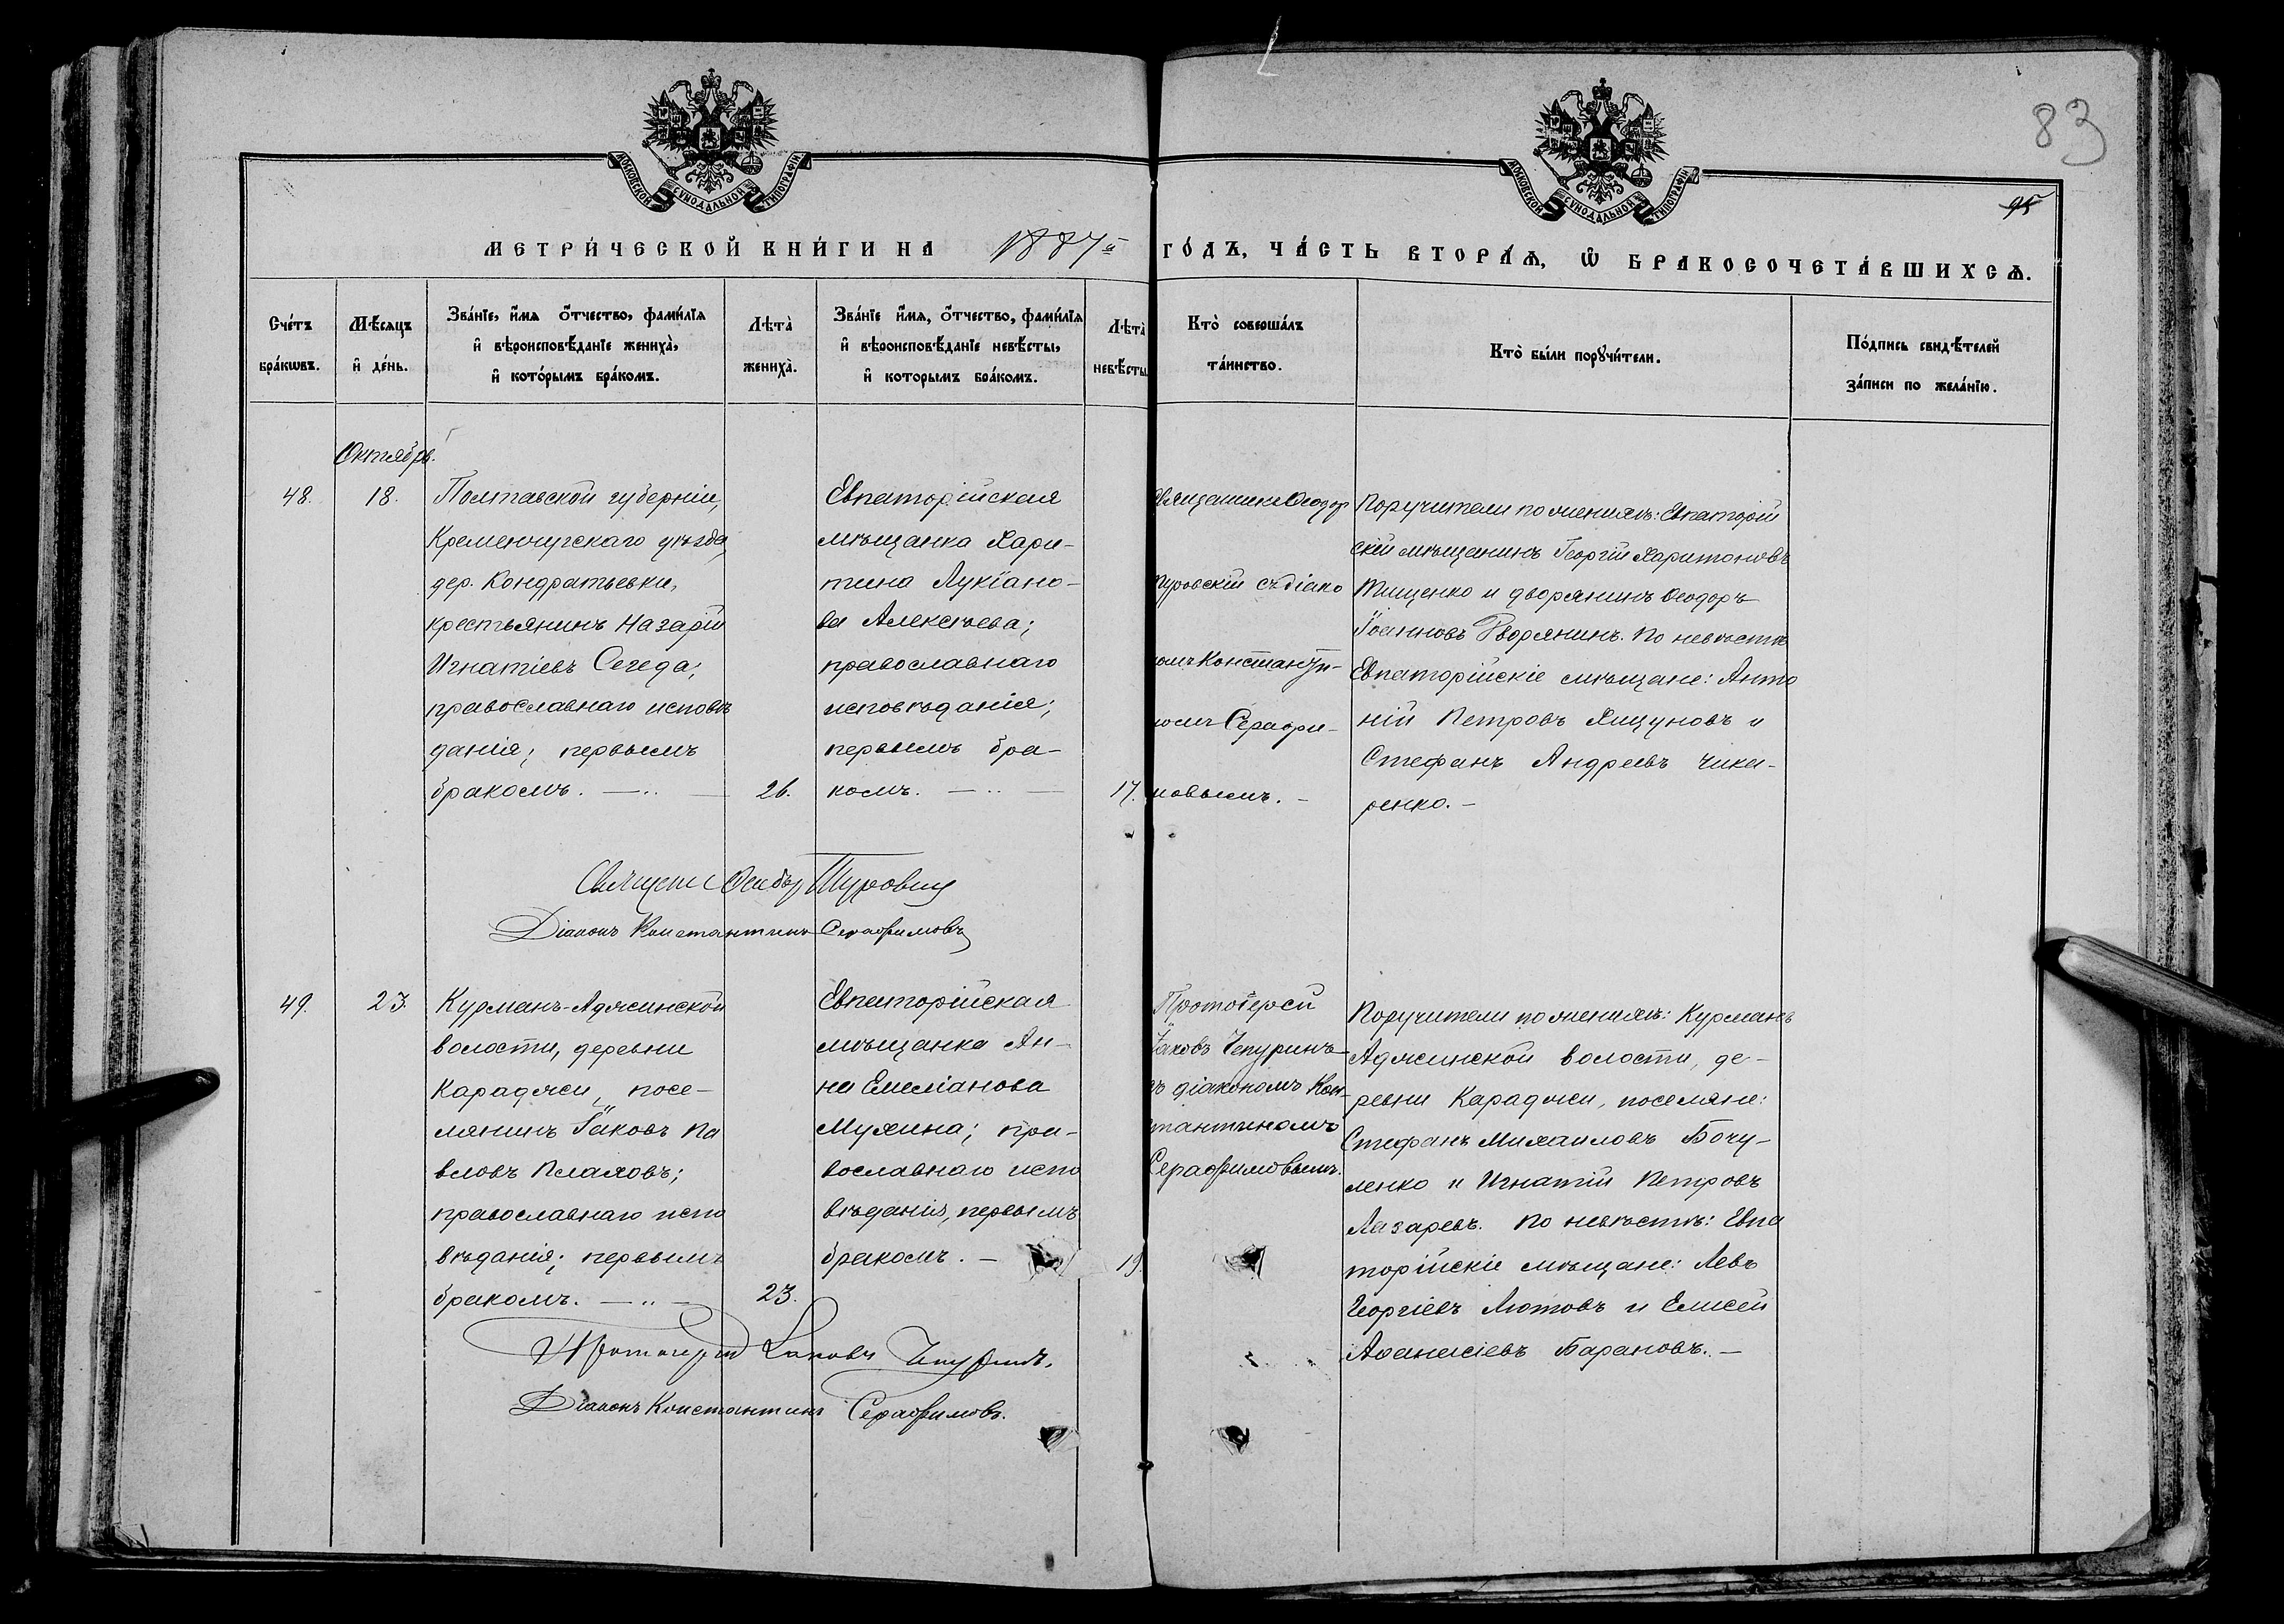 83
95
МОСКОВСКОЙ СѴНОДАЛЬНОЙ ТИПОГРАФІИ
МОСКОВСКОЙ СѴНОДАЛЬНОЙ ТИПОГРАФІИ
МЕТРИ́ЧЕСКОЙ КНИ́ГИ НА 1887й ГО́ДЪ, ЧА́СТЬ ВТОРА́Ѧ, Ѡ҆ БРАКОСОЧЕТА́ВШИХСѦ.
Сче́тъ
бра́кѡвъ.
Мѣ́сяцъ
и҆ де́нь.
Зва́нїе, и҆́мя ѻ҆́тчество, фами́лїя
и҆ вѣроисповѣ́данїе жениха̀,
и҆ кото́рымъ бра́комъ.
Лѣта̀
жениха̀.
Зва́нїе и҆́мя, ѻ҆́тчество, фами́лїя
и҆ вѣроисповѣ́данїе невѣ́сты,
и҆ которымъ бра́комъ.
Лѣта̀
невѣ́сты
Кто̀ соверша́лъ
та́инство.
Кто̀ бы́ли порꙋчи́тели.
По́дпись свидѣ́телей
за́писи по жела́нїю.
Октябрь.
48.
18.
Полтавской губерніи,
Кременчугскаго уѣзда,
дер. Кондратьевки,
крестьянинъ Назарій
Игнатіевъ Сегеда;
православнаго исповѣ
данія; первымъ
бракомъ. — „ —
26.
Евпаторійская
мѣщанка Хари-
тина Лукіано-
ва Алексѣева;
православнаго
исповѣданія;
первымъ бра-
комъ. — „ —
17.
Священникъ Ѳеодор
Туровскій съ діако
номъ Константи-
номъ Серафи-
мовымъ. —
Поручители по женихѣ: Евпаторій
скій мѣщанинъ Георгій Харитоновъ
Тищенко и дворянинъ Ѳеодоръ
Іоанновъ Дворянинъ. По невѣстѣ
Евпаторійскіе мѣщане: Анто
ній Петровъ Хицуновъ и
Стефанъ Андреевъ Чика-
ренко. —
Священ Ѳеодоръ Туровскій
Діаконъ Константинъ Серафимовъ
49.
23.
Курманъ-Аджинской
волости, деревни
Караджи, посе-
лянинъ Іаковъ Па
вловъ Плаховъ;
православнаго испо
вѣданія; первымъ
бракомъ. — „ —
23.
Евпаторійская
мѣщанка Ан-
на Емеліанова
Мухина; пра-
вославнаго испо
вѣданія, первымъ
бракомъ. —
19.
Протоіерей
Іаковъ Чепуринъ
съ діакономъ Кон
стантиномъ
Серафимовымъ.
Поручители по женихѣ: Курманъ
Аджинской волости, де-
ревни Караджи, поселяне:
Стефанъ Михаиловъ Бочу-
ленко и Игнатій Петровъ
Лазаревъ. По невѣстѣ: Евпа
торійскіе мѣщане: Левъ
Георгіевъ Лютовъ и Елисей
Аѳанасіевъ Барановъ. —
Протоіерей Іаковъ Чепуринъ.
Діаконъ Константинъ Серафимовъ.